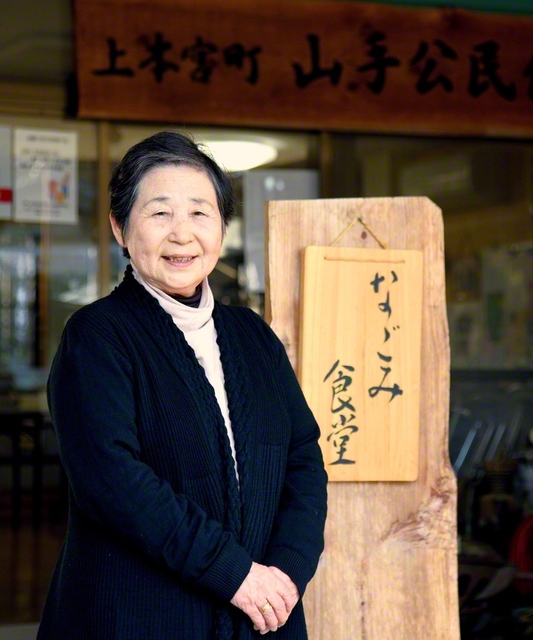 上本宮町 山手公民
なごみ
食堂